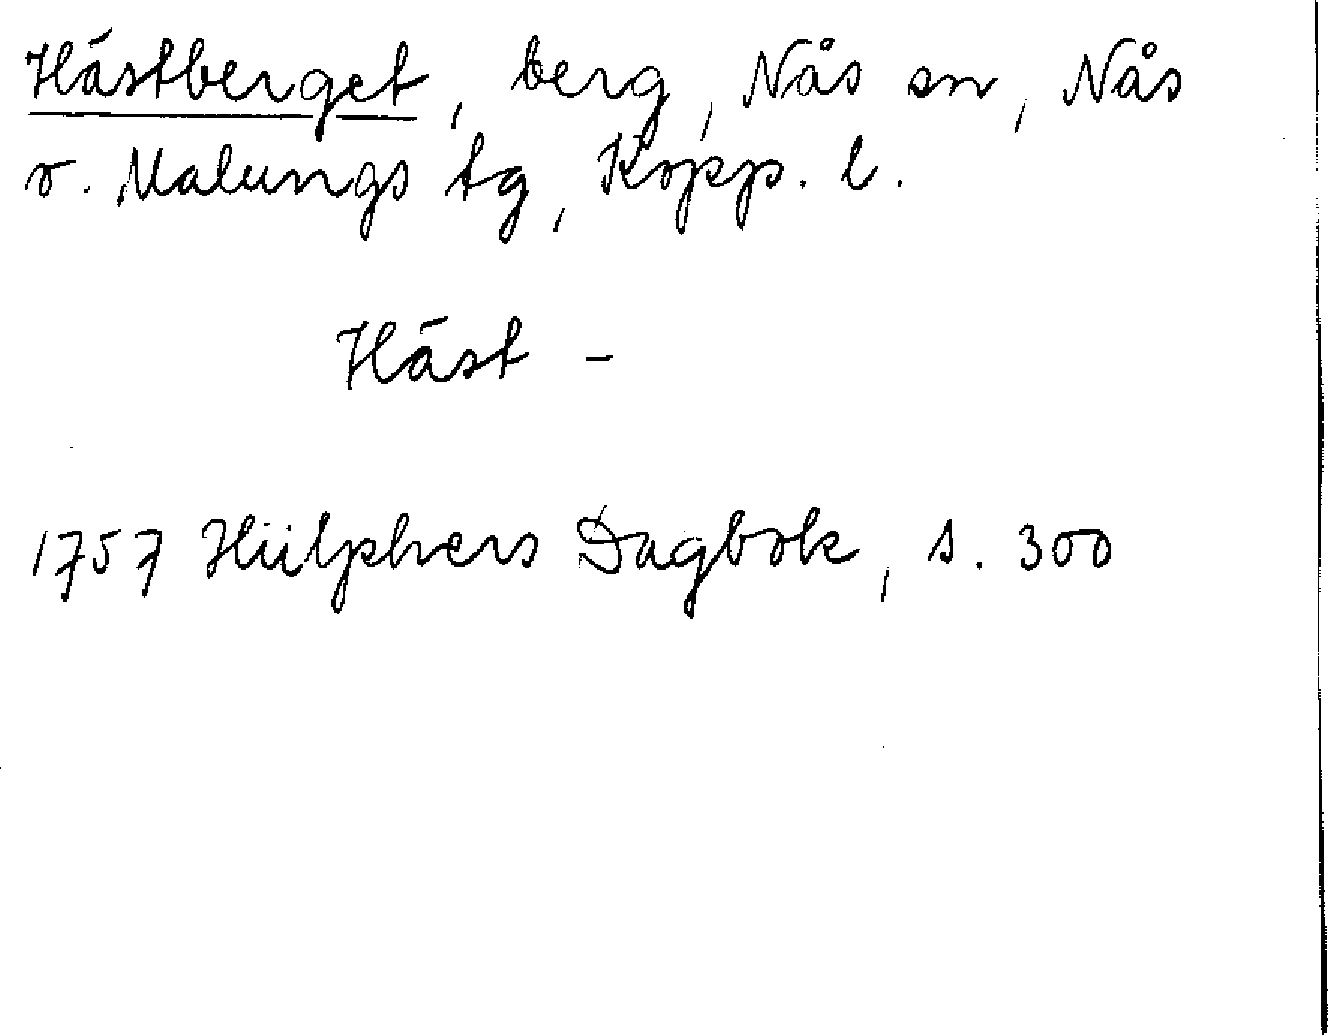 Hästberget, berg, Nås sn, Nås
o. Malungs tg, Kopp. l.
Häst -
1757 Hülphers Dagbok, s. 300